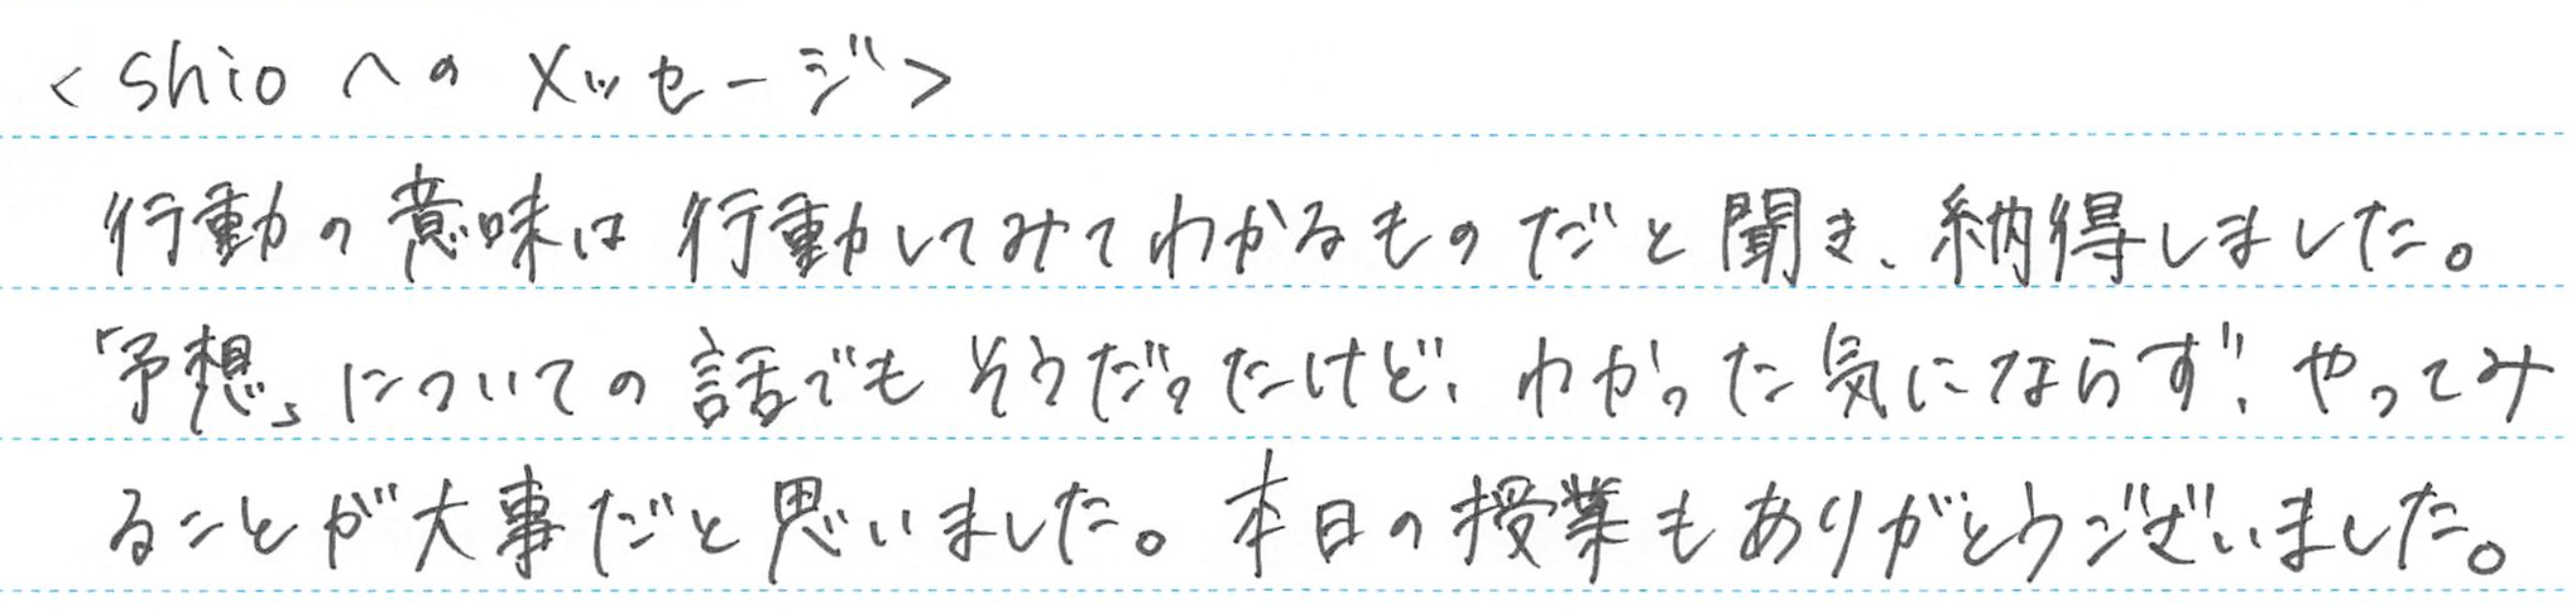 <shioへのメッセージ>
行動の意味は行動してみてわかるものだと聞き、納得しました。
「予想」についての話でもそうだったけど、わかった気にならず、やってみ
ることが大事だと思いました。本日の授業もありがとうございました。